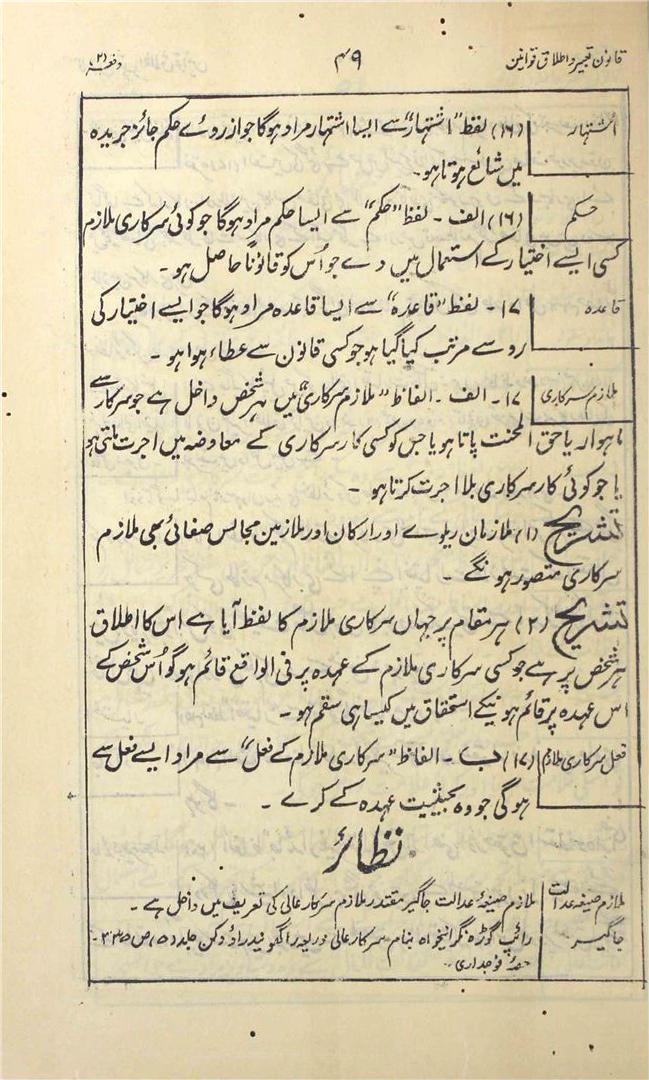 قانون تعبیر و اطلاق قوانین
۴۹
دفعہ (۲)
اشتہار
(۱۶) لفظ "اشتہار" سے ایسا اشتہار مراد ہوگا جو ازروئے حکم جائز جریدہ
میں شائع ہوتا ہو۔
حکم
(۱۶) الف ۔ لفظ "حکم" سے ایسا حکم مراد ہوگا جو کوئی سرکاری ملازم
کسی ایسے اختیار کے استعمال میں دے جو اُس کو قانوناً حاصل ہو ۔
قاعدہ
۱۷ ۔ لفظ "قاعدہ" سے ایسا قاعدہ مراد ہوگا جو ایسے اختیار کی
رو سے مرتب کیا گیا ہو جو کسی قانون سے عطاء ہوا ہو ۔
ملازم سرکاری
۱۷ ۔ الف ۔ الفاظ "ملازم سرکاری" میں ہر شخص داخل ہے جو سرکار سے
ماہوار یا حق المحنت پاتا ہو یا جس کو کسی کار سرکاری کے معاوضہ میں اجرت ملتی ہو
یا جو کوئی کار سرکاری بلا اجرت کرتا ہو ۔
تشریح (۱) ملازمان ریلوے اور ارکان اور ملازمین مجالس صفائی بھی ملازم
سرکاری متصور ہونگے ۔
تشریح (۲) ہر مقام پر جہاں سرکاری ملازم کا لفظ آیا ہے اس کا اطلاق
ہر شخص پر ہے جو کسی سرکاری ملازم کے عہدہ پر فی الواقع قائم ہو گو اُس شخص کے
اس عہدہ پر قائم ہونیکے استحقاق میں کیسا ہی سقم ہو ۔
فعل سرکاری ملازم
(۱۷) (ب) ۔ الفاظ "سرکاری ملازم کے فعل" سے مراد ایسے فعل سے
ہوگی جو وہ بحیثیت عہدہ کے کرے ۔
نظائر
ملازم صیغہ عدالت
جاگیر
ملازم صیغۂ عدالت جاگیر مقتدر ملازم سرکار عالی کی تعریف میں داخل ہے ۔
گوڑہ نگرانیخواہ بنام سرکار عالی ذریعہ راگھویندر راؤ دکن جلد (۵) ص ۳۳۵ ۔
حصۂ فوجداری ۔